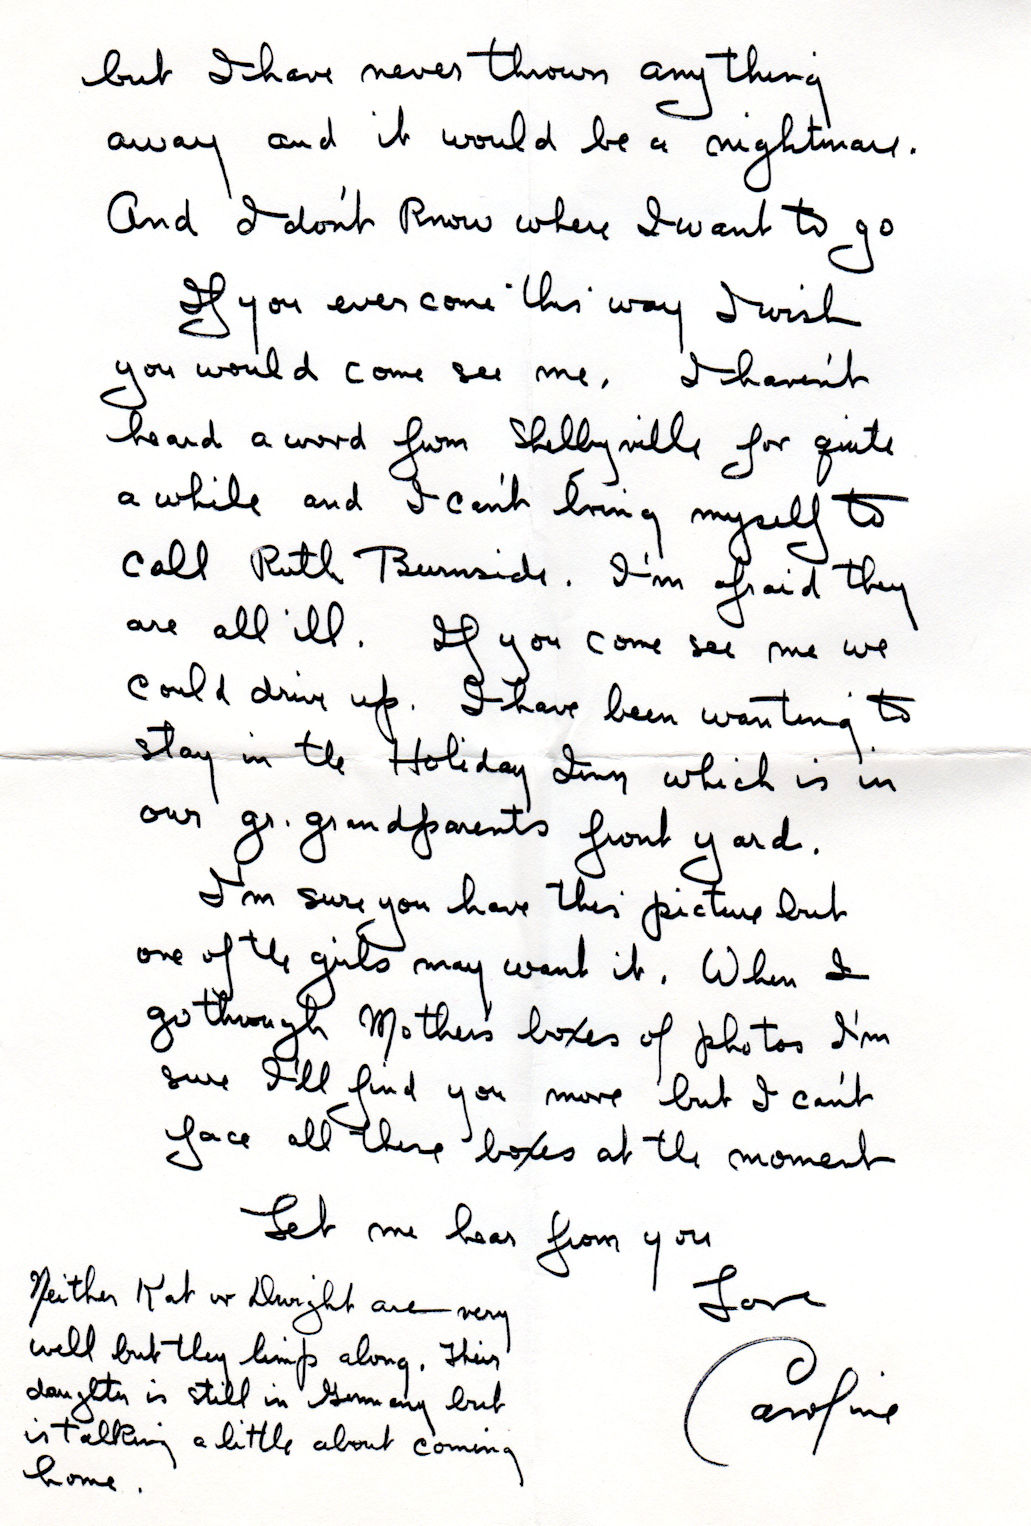 but I have never thrown anything
away and it would be a nightmare.
And I don't know where I want to go
If you ever come this way I wish
you would come see me. I haven't
heard a word from Shelbyville for quite
a while and I can't bring myself to
call Ruth Burnside. I'm afraid they
are all ill. If you come see me we
could drive up. I have been wanting to
stay in the Holiday Inn which is in
our gr. grandparents front yard.
I'm sure you have this picture but
one of the girls may want it. When I
go through Mother's boxes of photos I'm
sure I'll find you more but I can't
face all these boxes at the moment
Let me hear from you
Love
Caroline
Neither Kat or Dwight are very
well but they limp along. Their
daughter is still in Germany but
is talking a little about coming
home.